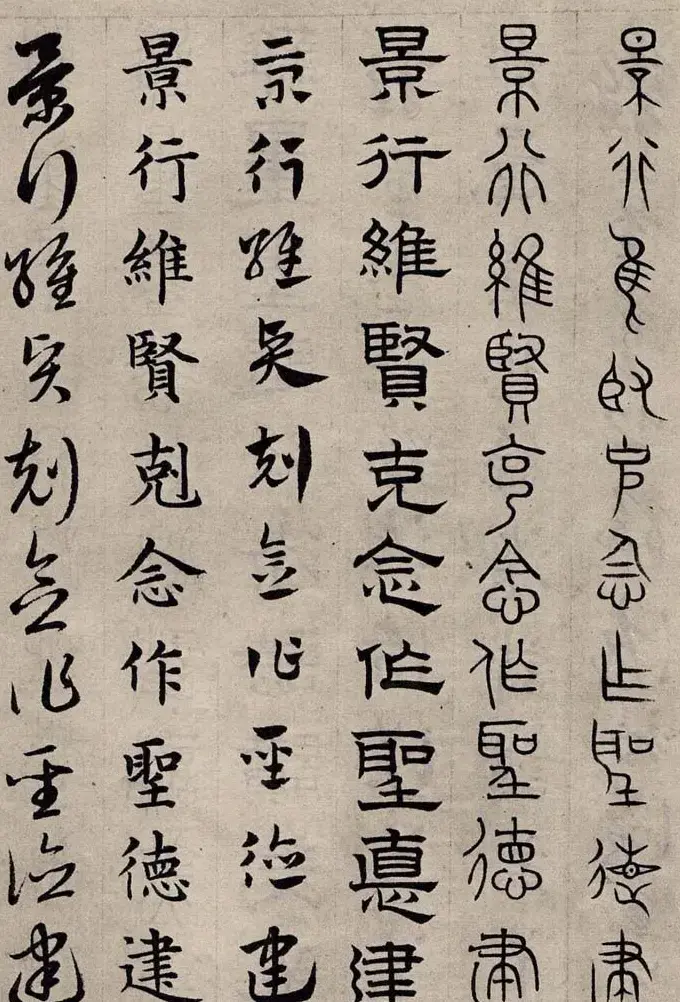 景行維賢克念作聖德建
景行維賢克念作聖德建
景行維賢克念作聖悳建
景行維賢剋念作聖德建
景行維賢剋念作聖德建
景行維賢剋念作聖德建